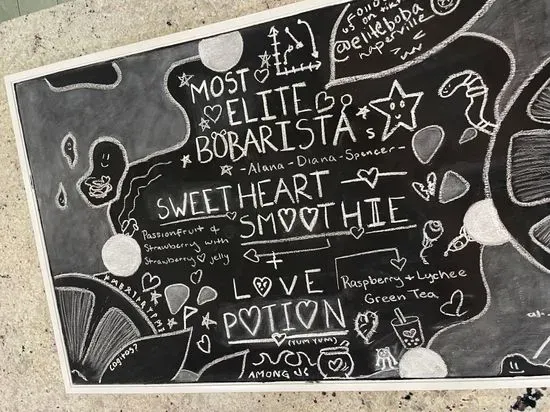 Follow
us
on tiktok
@eliteboba
naperville
MOST
ELITE
BOBARISTAS
-Alana-Diana-Spencer-
SWEETHEART
SMOOTHIE
Passionfruit &
Strawberry with
Strawberry jelly
+
LOVE
POTION
(YUM YUM)
Raspberry + Lychee
Green Tea
#MBRTRYPME
cogitos?
AMONG US